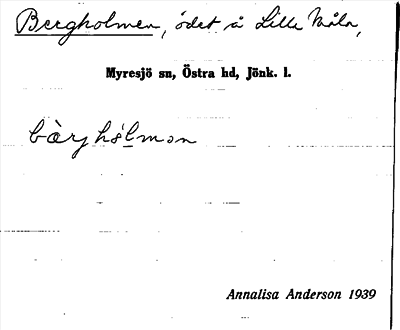 Bergholmen, ödet å Lilla Måla,
Myresjö sn, Östra hd, Jönk. l.
bàrjhólmən
Annalisa Anderson 1939